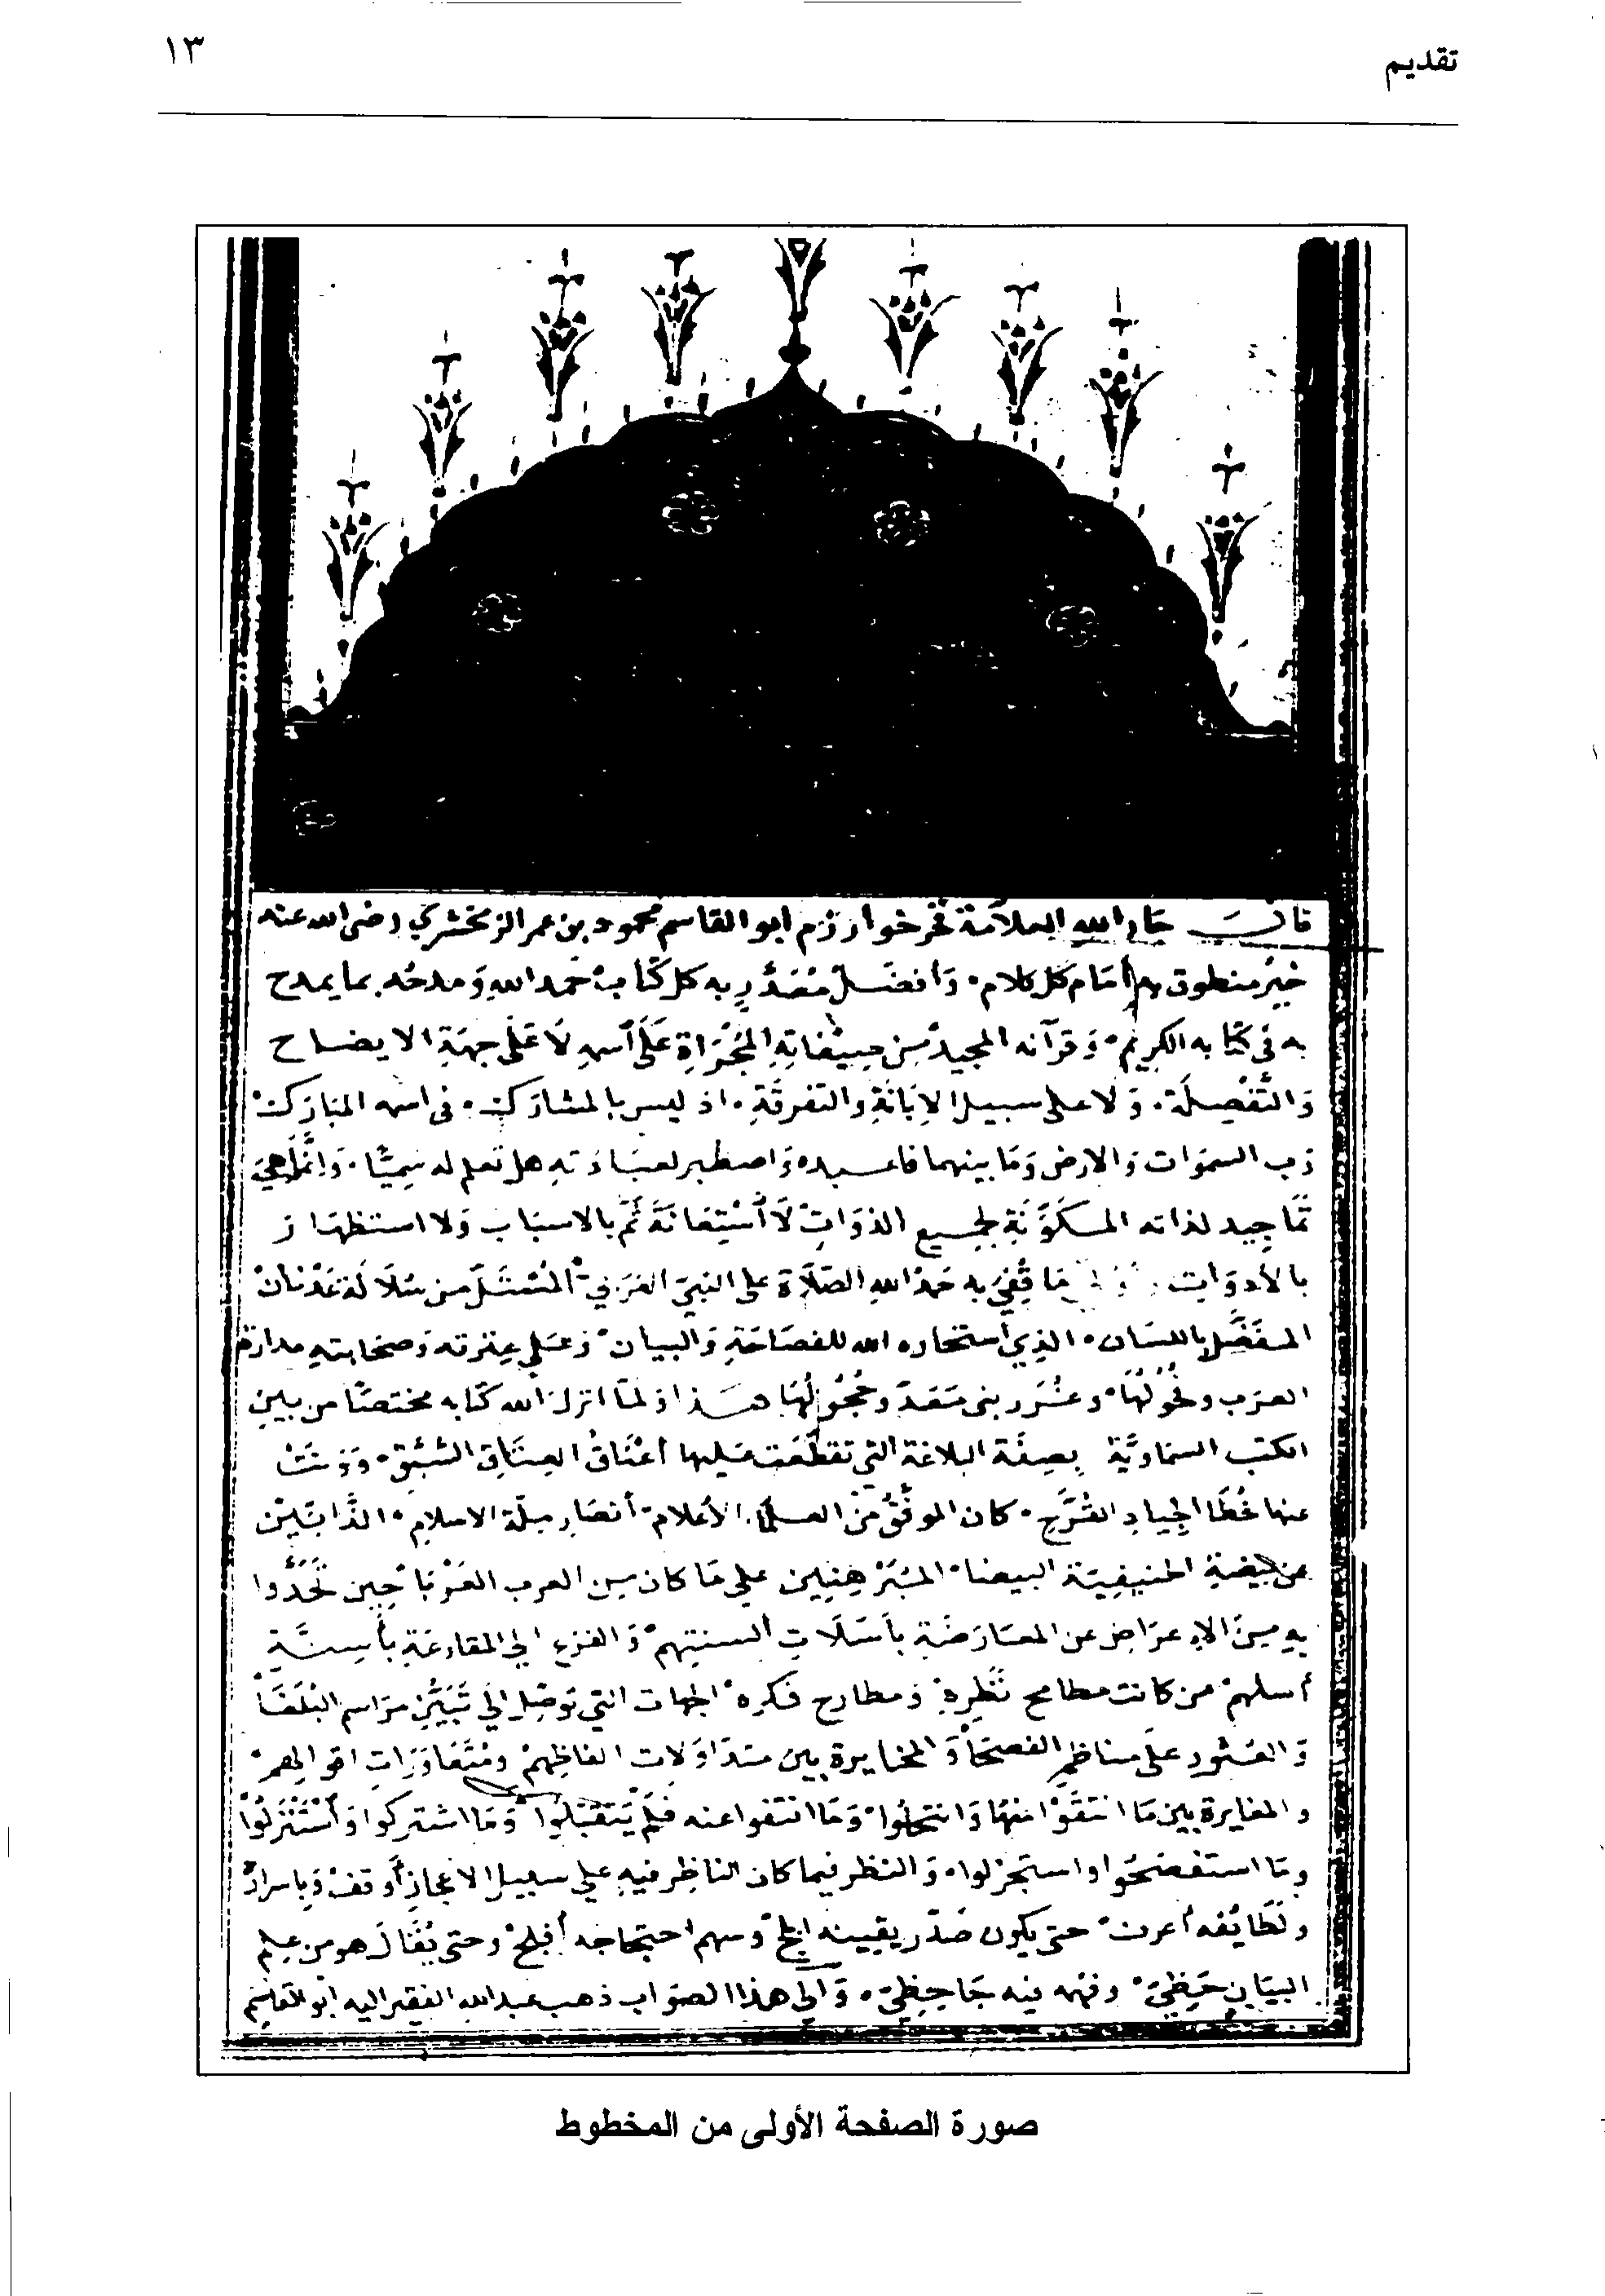 تقديم
١٣
قال جار الله العلامة فخر خوارزم ابو القاسم محمود بن عمر الزمخشري رضى الله عنه
خير منطوق به أمام كل كلام وأفضل مصدر به كل كتاب حمد الله ومدحه بما يمدح
به فى كتابه الكريم وقرآنه المجيد من صفاته المجراة على اسمه لا على جهة الايضاح
والتفصلة ولا على سبيل الابانة والتفرقة اذ ليس بالمشارك فى اسمه المبارك
رب السموات والارض وما بينهما فاعبده واصطبر لعبادته هل تعلم له سميّا وانما هي
تماجيد لذاته المكونة لجميع الذوات لا استعانة ثم بالاسباب ولا استظهار
بالأدوات ما قفي به حمد الله الصلاة على النبي العربي المستل من سلالة عدنان
المفضل باللسان الذي استخاره الله للفصاحة والبيان وعلى عترته وصحابته مدارة
العرب وفحولها وغرر بنى معد وحجولها هذا ولما انزل الله كتابه مختصّا من بين
الكتب السماوية بصفة البلاغة التي تقطعت عليها أعناق العتاق السبق وونت
عنها خطا الجياد القرح كان الموفق من العلماء الأعلام أنصار ملة الاسلام الذابين
عن بيضة الحنيفية البيضا المبرهنين على ما كان من العرب العربا حين تحدوا
به من الاعراض عن المعارضة بأسلات ألسنتهم والفزع الى المقارعة بأسنة
أسلهم من كانت مطامح نظره ومطارح فكره الجهات التي توصل الى تبين مراسم البلغا
والعثور على مناظم الفصحا والمخايرة بين متداولات الفاظهم ومتعاورات اقوالهم
والمغايرة بين ما انتقوا منها وانتخلوا وما انتفوا عنه فلم يتقبلوا وما اشتركوا واستنزلوا
وما استفصحوا واستجزلوا والنظر فيما كان الناظر فيه على سبيل الاعجاز أوقف وباسراره
ولطائفه أعرف حتى يكون صدر يقينه اثلج وسهم احتجاجه أفلج وحتى يقال هو من علم
البيان حظي وفهمه فيه جاحظي والى هذا الصواب ذهب عبد الله الفقير اليه ابو القاسم
صورة الصفحة الأولى من المخطوط